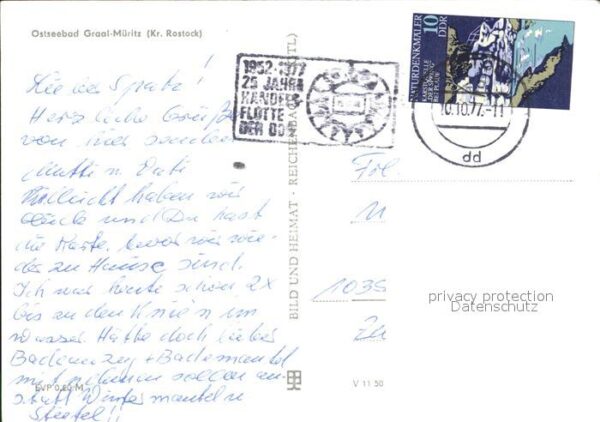 Ostseebad Graal-Müritz (Kr. Rostock)
Lieber Spatz!
Herzliche Grüße
von hier senden
Mutti u. Vati
Vielleicht haben wir
Glück und Du hast
die Karte, bevor wir wie-
der zu Hause sind.
Ich war heute schon 2x
bis zu den Knien im
Wasser. Hätte doch lieber
Badeanzug + Bademantel
mitnehmen sollen an-
statt Wintermantel u
Stiefel!!
EVP 0,20 M
BILD UND HEIMAT · REICHENBACH (VOGTL)
V 11 50
1952-1977
25 JAHRE
HANDELS
FLOTTE
DER DDR
NATURDENKMÄLER
10 DDR
10.77.-11
dd
1035
privacy protection
Datenschutz